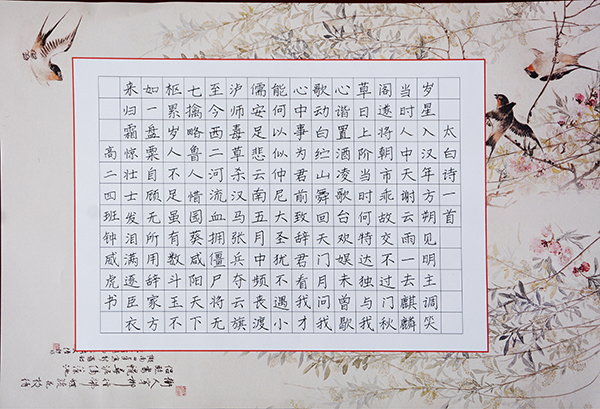 太白诗一首
岁星入汉年方朔见明主调笑
当时人中天谢云雨一去麒麟
阁遂将朝市乖故交不过门秋
草日上阶当时何特达独与我
心谐置酒凌歌台欢娱未曾歇
歌动白纻山舞回天门月问我
心中事为君前致辞君看我才
能何以似仲尼大圣犹不遇小
儒安足悲云南五月中频丧渡
泸师毒草杀汉马张兵夺云旗
至今西二河流血拥僵尸将无
七擒略鲁人惜园葵咸阳天下
枢累岁人不足虽有数斗玉不
如一盘粟自顾无所用辞家方
来归霜惊壮士发泪满逐臣衣
高二四班钟威虎书